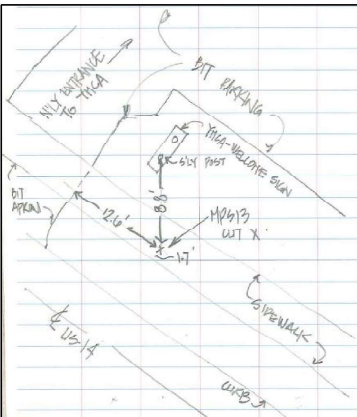 N'LY ENTRANCE
TO YMCA
BIT PARKING
YMCA-WELCOME SIGN
S'LY POST
BIT
APRON
12.6'
8.8'
MPS13
CUT X
1.7'
SIDEWALK
℄ US-14
CURB